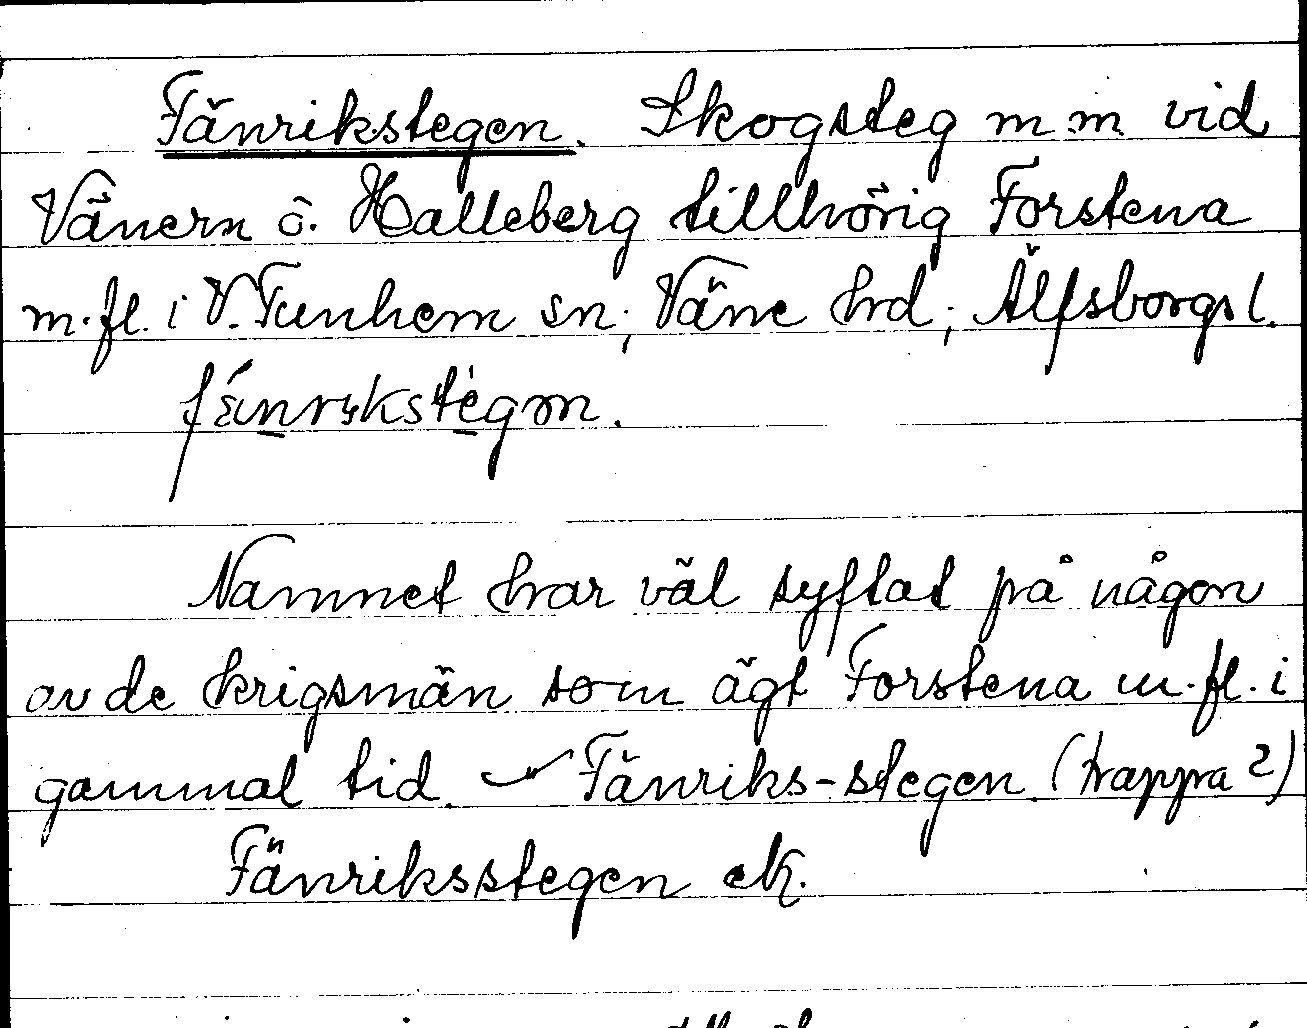 Fänrikstegen. Skogsteg m.m. vid
Vänern ö. Halleberg tillhörig Forstena
m.fl. i V. Tunhem sn; Väne hrd; Älfsborgs l.
Namnet har väl syftat på någon
av de krigsmän som ägt Forstena m.fl. i
gammal tid. Fänriks-stegen (trappa 2)
Fänriksstegen ek.